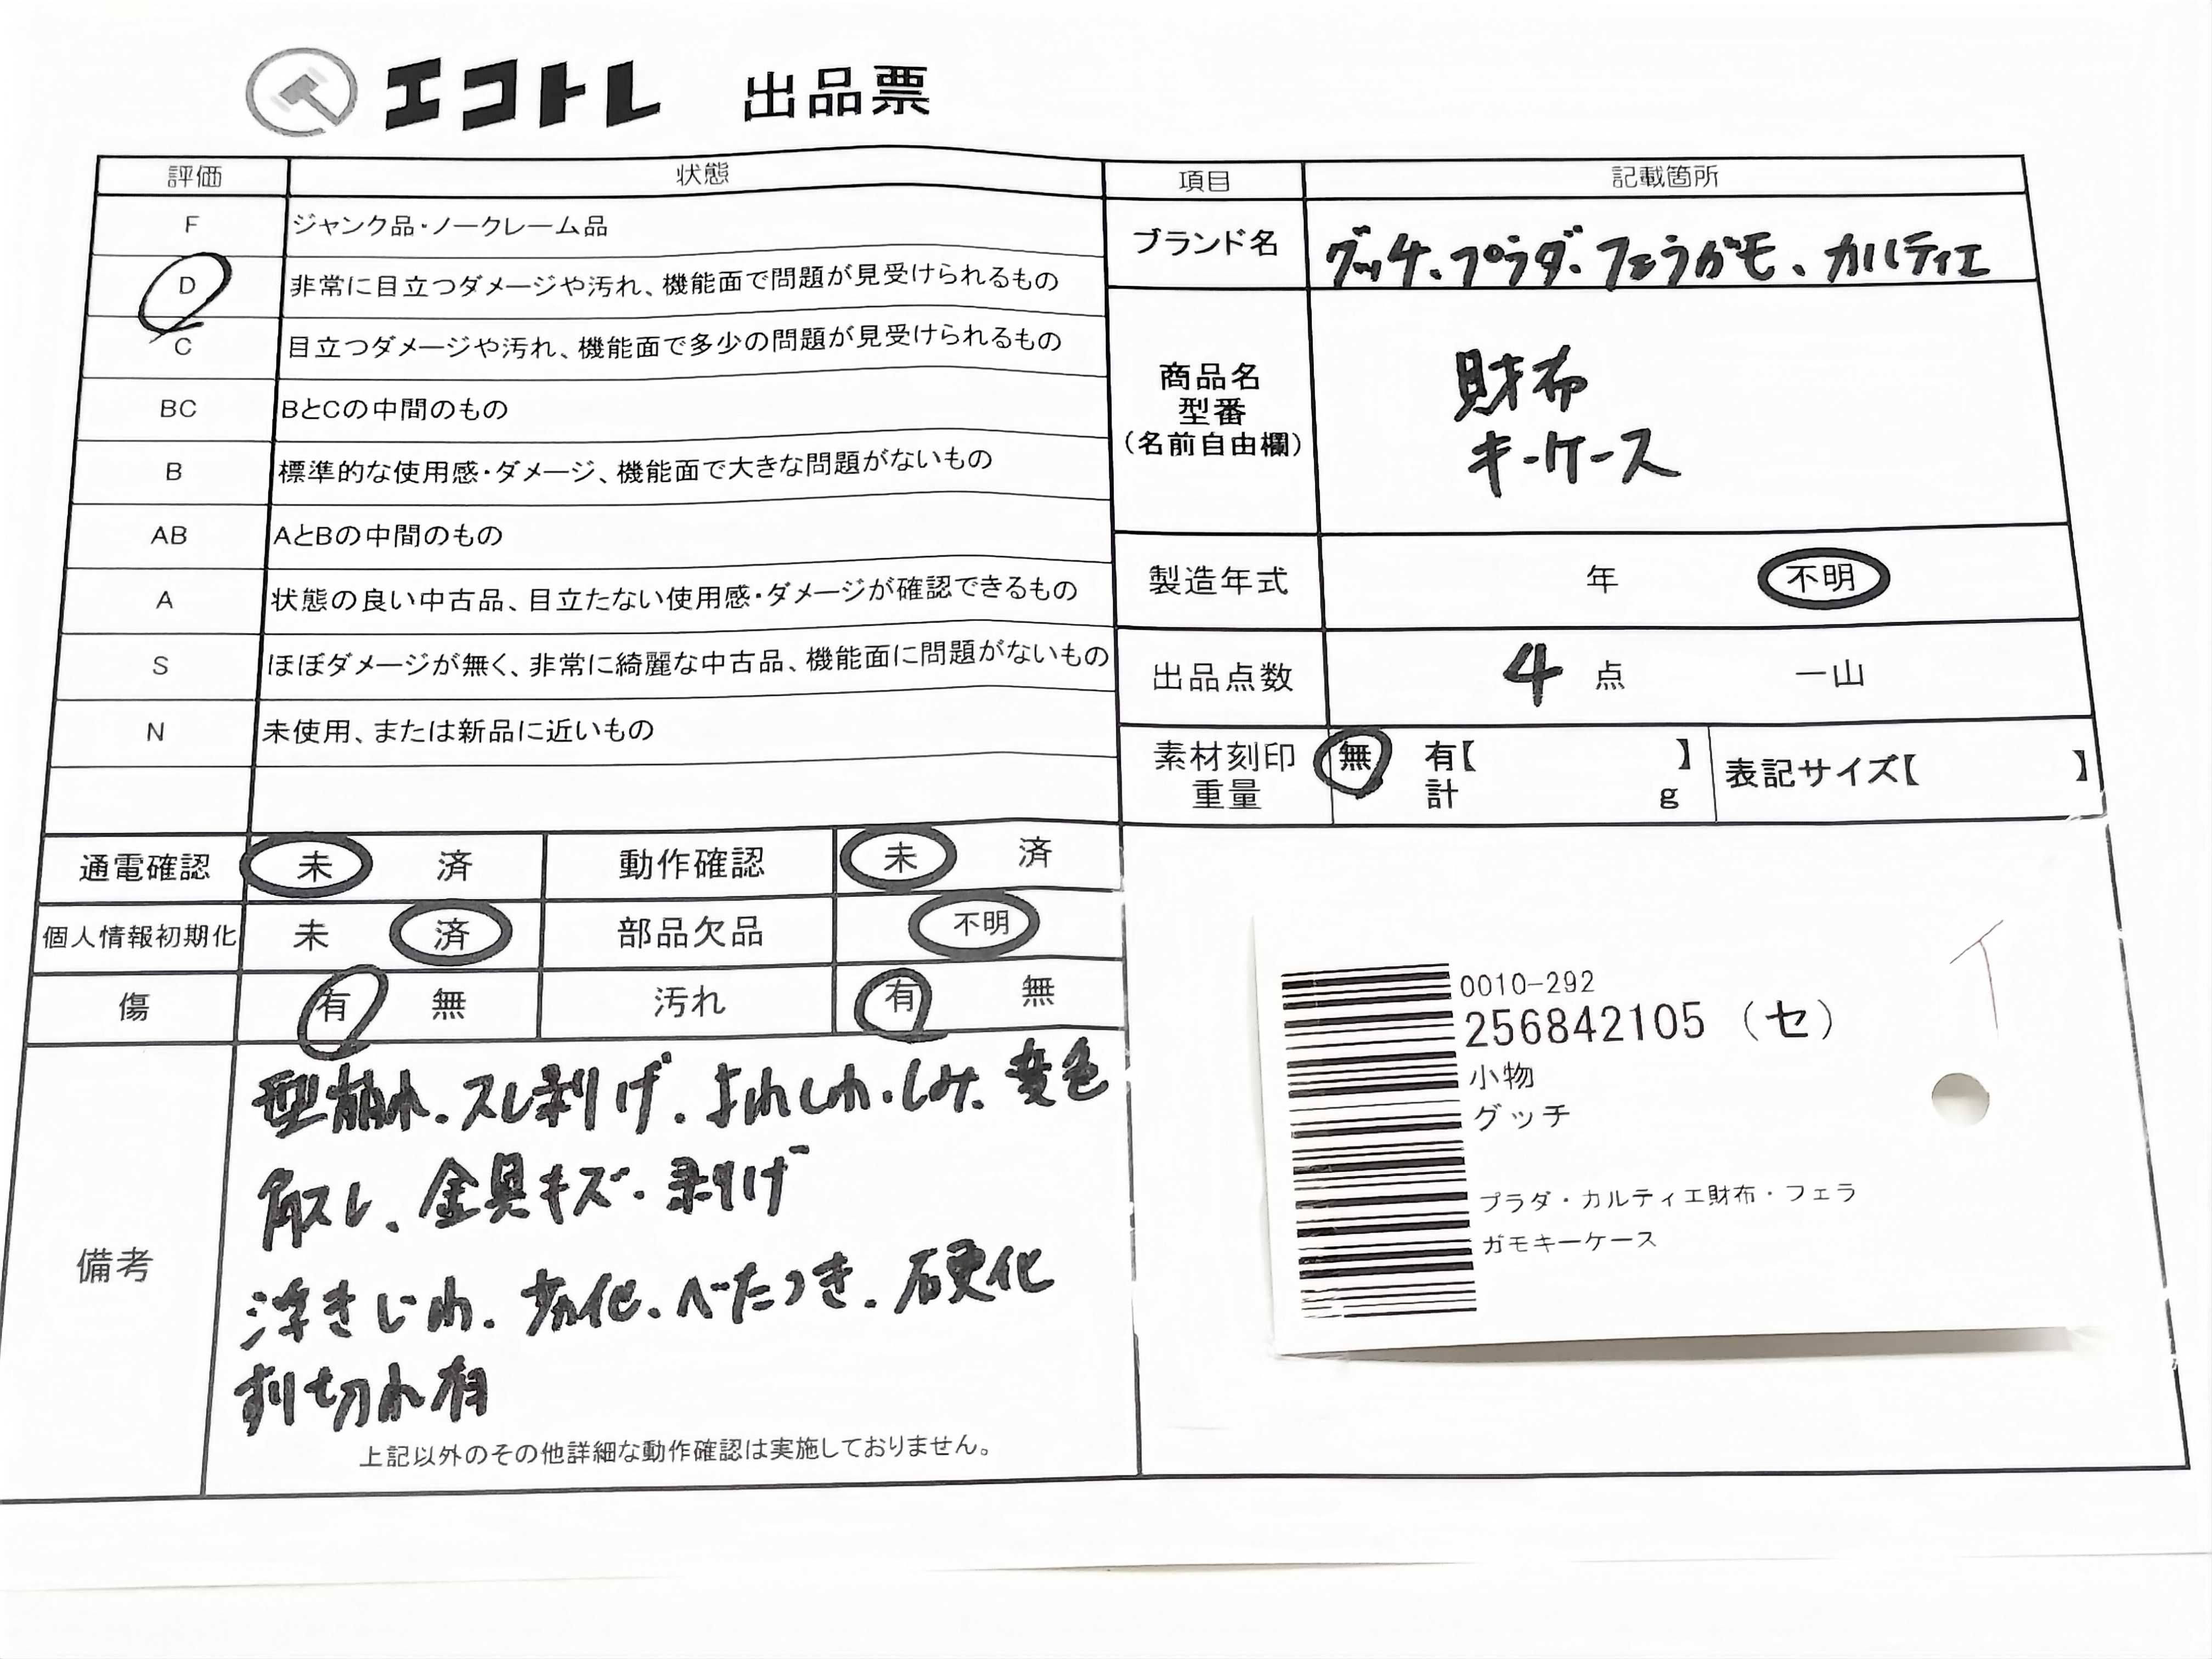 エコトレ 出品票
評価 状態
F ジャンク品・ノークレーム品
D 非常に目立つダメージや汚れ、機能面で問題が見受けられるもの
C 目立つダメージや汚れ、機能面で多少の問題が見受けられるもの
BC BとCの中間のもの
B 標準的な使用感・ダメージ、機能面で大きな問題がないもの
AB AとBの中間のもの
A 状態の良い中古品、目立たない使用感・ダメージが確認できるもの
S ほぼダメージが無く、非常に綺麗な中古品、機能面に問題がないもの
N 未使用、または新品に近いもの
通電確認 未 済 動作確認 未 済
個人情報初期化 未 済 部品欠品 不明
傷 有 無 汚れ 有 無
備考
型崩れ、スレ剥げ、よれしわ、しみ、変色
角スレ、金具キズ・剥げ
浮きじわ、劣化、べたつき、硬化
すり切れ有
上記以外のその他詳細な動作確認は実施しておりません。
項目 記載箇所
ブランド名 グッチ、プラダ、フェラガモ、カルティエ
商品名
型番
(名前自由欄)
財布
キーケース
製造年式 年 不明
出品点数 4 点 一山
素材刻印 無 有【 】
重量 計 g
表記サイズ【 】
0010-292
256842105 (セ)
小物
グッチ
プラダ・カルティエ財布・フェラ
ガモキーケース